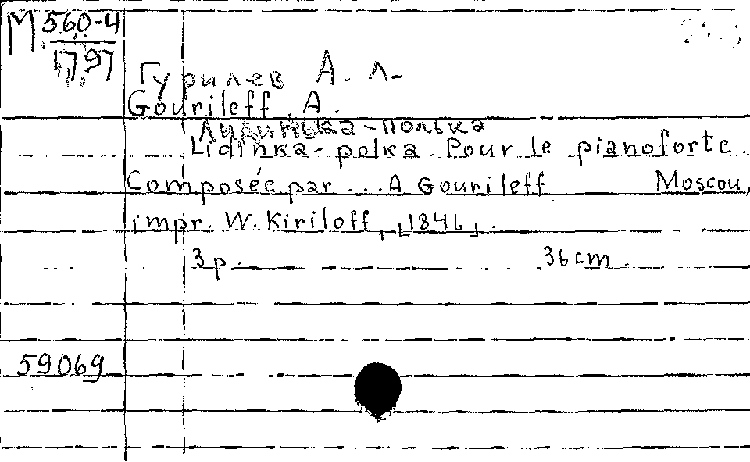 М. 560-4
17,97
Гурилев А. Л.
Gourileff, A.
Лидинька-полька
Lidinka-polka Pour le pianoforte
Composée par ... A Gourileff Moscou,
impr. W. Kiriloff, [1846].
3 p. 36 cm.
59069